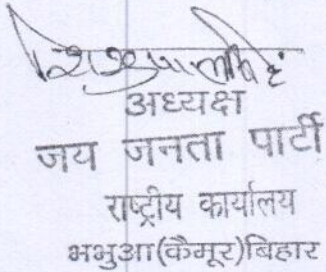 अध्यक्ष
जय जनता पार्टी
राष्ट्रीय कार्यालय
भभुआ(कैमूर)बिहार